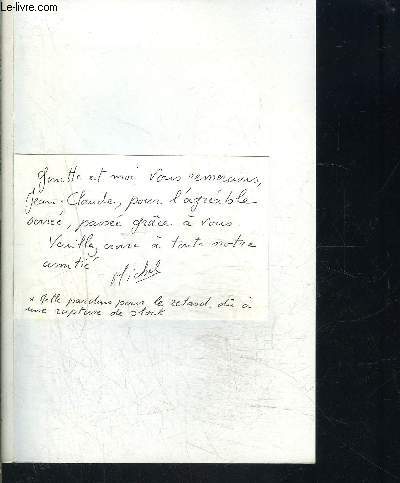 Le-livre.com
et moi vous remercions,
Jean-Claude, pour l'agréable
soirée, passée grâce à vous.
Veuillez croire à toute notre
amitié
Michel
* Mille pardons pour le retard dû à
une rupture de stock